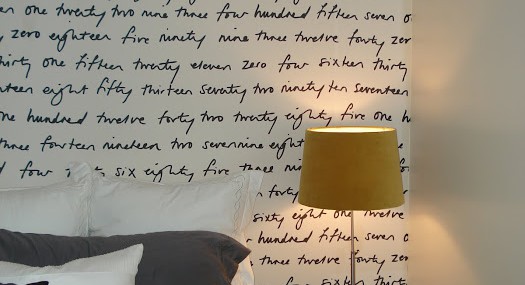 one twenty two nine three four hundred fifteen seven
zero eighteen five ninety nine three twelve forty zer
thirty one fifteen twenty eleven zero four sixteen thirty
nteen eight fifty thirteen seventy two ninety ten seventeen
one hundred twelve forty two twenty eighty five one hu
three fourteen nineteen two seven nine eight
four six eighty five three nine
forty
sixty eight one twelve
hundred fifteen seven o
three twelve forty zer
four sixteen thirt